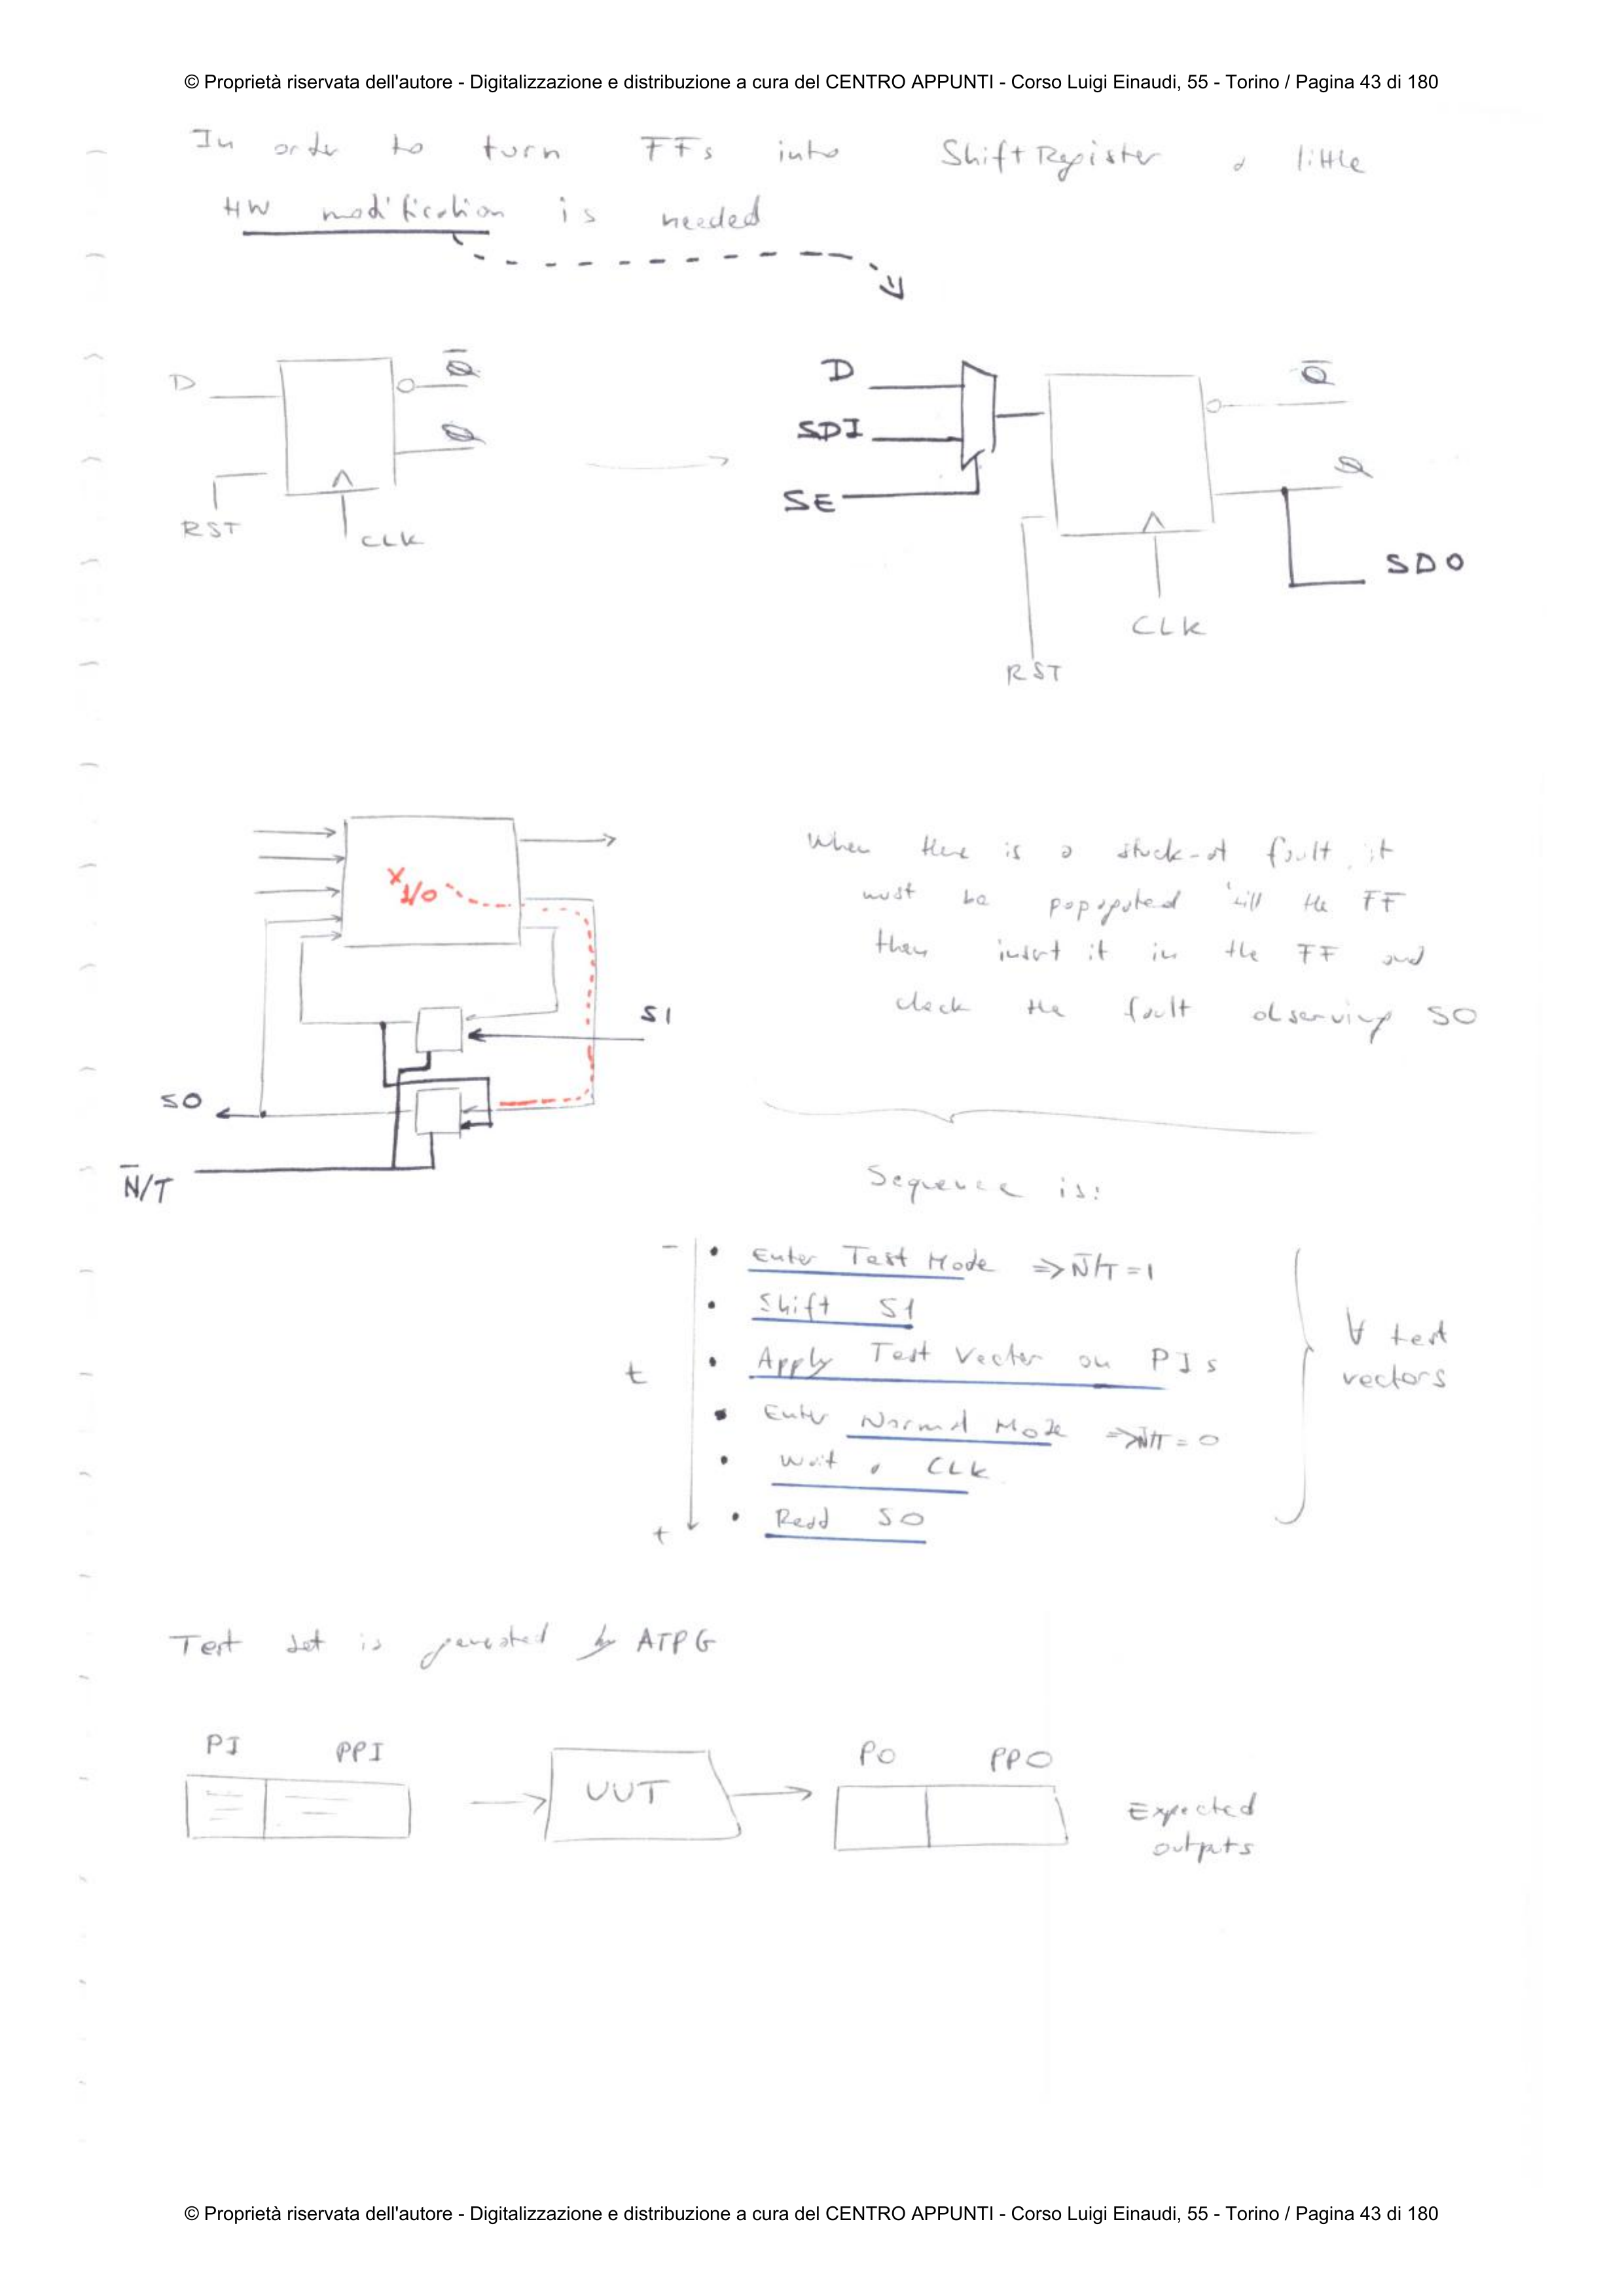 © Proprietà riservata dell'autore - Digitalizzazione e distribuzione a cura del CENTRO APPUNTI - Corso Luigi Einaudi, 55 - Torino / Pagina 43 di 180
In order to turn FFs into Shift Register a little
HW modification is needed
D
Q̅
Q
RST
CLK
D
SDI
SE
Q̅
Q
SDO
CLK
RST
X 1/0
SI
SO
N̅/T
When there is a stuck-at fault, it
must be popagated till the FF
then insert it in the FF and
check the fault observing SO
Sequence is:
• Enter Test Mode => N̅/T = 1
• Shift SI
• Apply Test Vector on PIs
• Enter Normal Mode => N̅/T = 0
• Wait a CLK
• Read SO
t
t
∀ test
vectors
Test set is generated by ATPG
PI PPI
UUT
PO PPO
Expected
outputs
© Proprietà riservata dell'autore - Digitalizzazione e distribuzione a cura del CENTRO APPUNTI - Corso Luigi Einaudi, 55 - Torino / Pagina 43 di 180